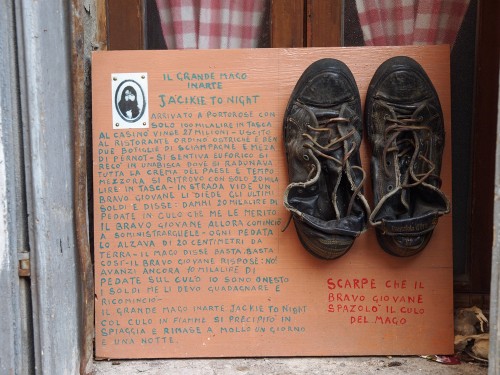 IL GRANDE MAGO
INARTE
JACIKIE TO NIGHT
ARRIVATO A PORTOROSE CON
SOLO 100 MILA LIRE IN TASCA
AL CASINO VINSE 27 MILIONI - USCITO
AL RISTORANTE ORDINO OSTRICHE E BEN
DUE BOTIGLIE DI SCIAMPAGNE E MEZA
DI PERNOT - SI SENTIVA EUFORICO SI
RECO IN UN ABISCA DOVE SI RADUNAVA
TUTTA LA CREMA DEL PAESE E TEMPO
MEZZORA SI RITROVO CON SOLO 20 MILA
LIRE IN TASCA - IN STRADA VIDE UN
BRAVO GIOVANE LI DIEDE GLI ULTIMI
SOLDI E DISSE: DAMMI 20 MILA LIRE DI
PEDATE IN CULO CHE ME LE MERITO.
IL BRAVO GIOVANE ALLORA COMINCIO
A SOMINISTRARGUELE - OGNI PEDATA
LO ALZAVA DI 20 CENTIMETRI DA
TERRA - IL MAGO DISSE BASTA, BASTA
COSI - IL BRAVO GIOVANE RISPOSE: NO!
AVANZI ANCORA 10 MILA LIRE DI
PEDATE SUL CULO IO SONO ONESTO
I SOLDI ME LI DEVO GUADAGNARE E
RICOMINCIO -
IL GRANDE MAGO INARTE JACKIE TO NIGHT
COL CULO IN FIAMME SI PRECIPITO IN
SPIAGGIA E RIMASE A MOLLO UN GIORNO
E UNA NOTTE.
SCARPE CHE IL
BRAVO GIOVANE
SPAZOLO IL CULO
DEL MAGO